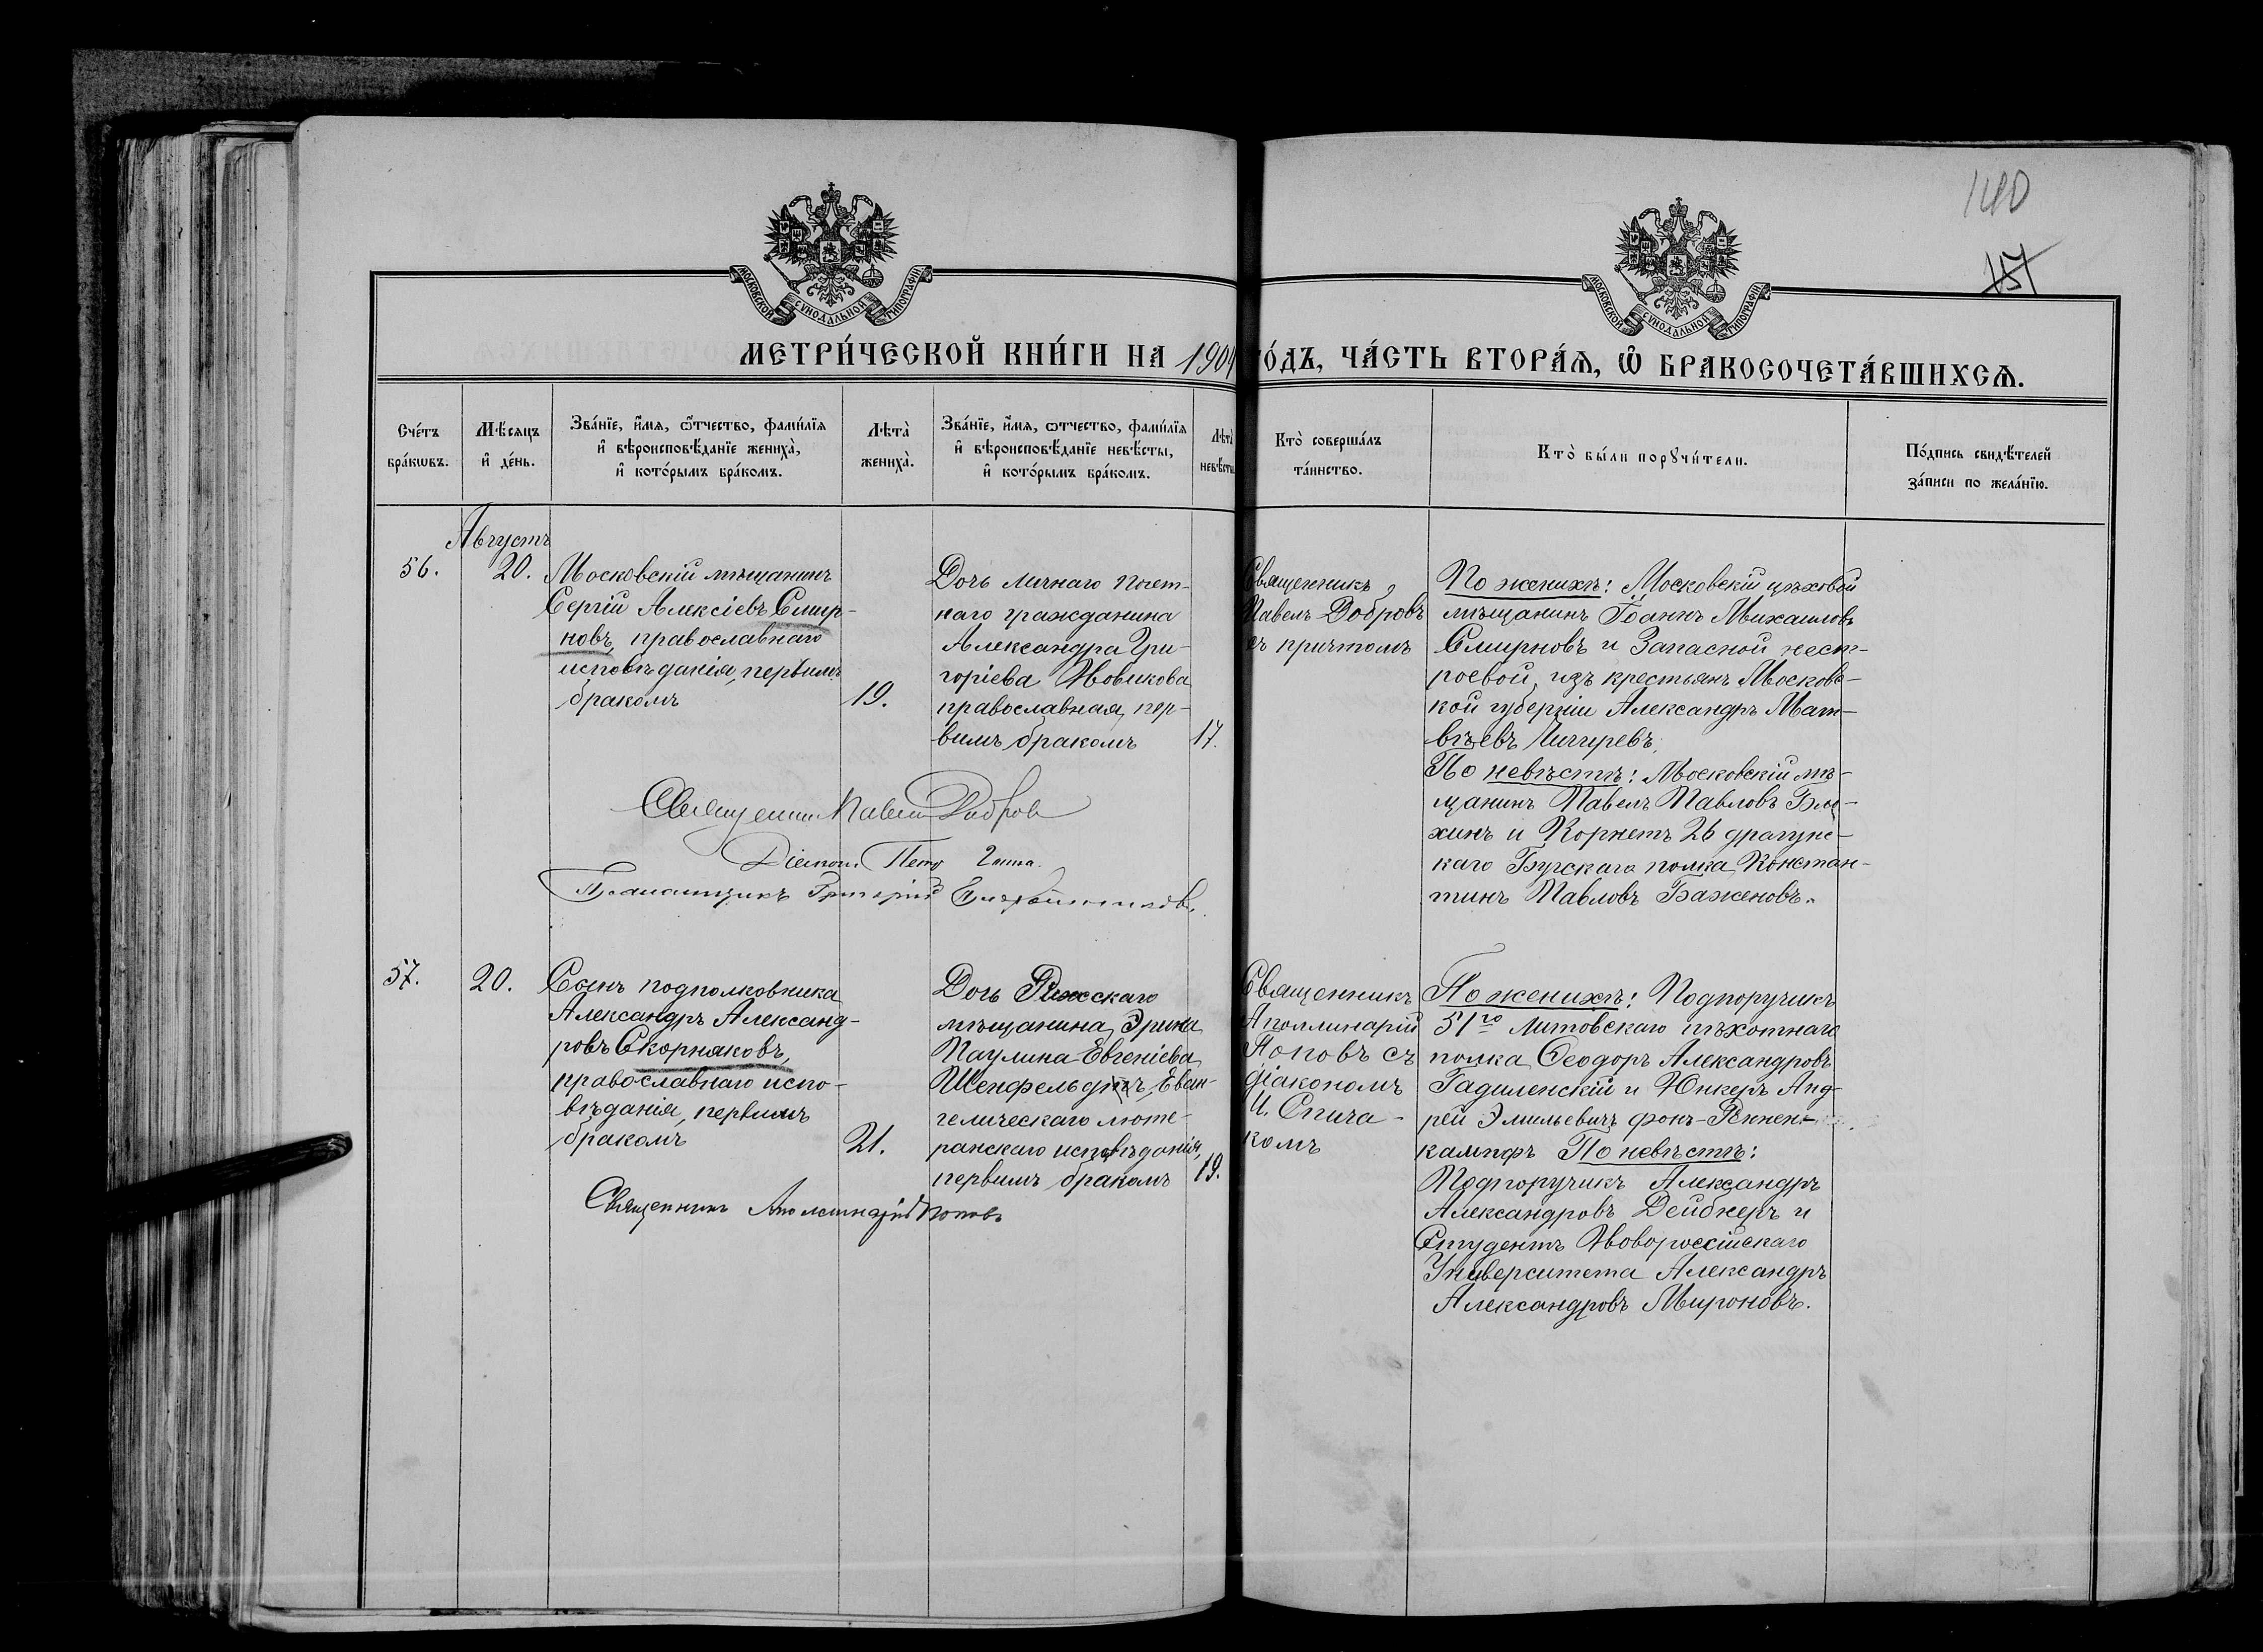 140
157
МОСКОВСКОЙ СѴНОДАЛЬНОЙ ТИПОГРАФІИ
МОСКОВСКОЙ СѴНОДАЛЬНОЙ ТИПОГРАФІИ
МЕТРИ́ЧЕСКОЙ КНИ́ГИ НА 1904 ГО́ДЪ, ЧА́СТЬ ВТОРА́Ѧ, Ѽ БРАКОСОЧЕТА́ВШИХСѦ.
Сче́тъ
бра́кѡвъ.
Мѣ́сяцъ
и҆ де́нь.
Зва́нїе, и҆́мѧ, ѻ҆́тчество, фами́лїѧ
и҆ вѣроисповѣ́данїе жениха̀,
и҆ кото́рымъ бра́комъ.
Лѣта̀
жениха̀.
Зва́нїе, и҆́мѧ, ѻ҆тчество, фами́лїѧ
и҆ вѣроисповѣ́данїе невѣ́сты,
и҆ кото́рымъ бра́комъ.
Лѣта̀
невѣ́сты
Кто̀ соверша́лъ
та́инство.
Кто̀ бы́ли порꙋчи́тели.
По́дпись свидѣ́телей
за́писи по жела́нїю.
Августъ
56.
20.
Московскій мѣщанинъ
Сергій Алексіевъ Смир-
новъ, православнаго
исповѣданія, первымъ
бракомъ
19.
Дочь личнаго почет-
наго гражданина
Александра Гри-
горіева Новикова
православная, пер-
вымъ бракомъ
17.
Священникъ
Павелъ Добровъ
съ причтомъ
По женихѣ: Московскій цѣховой
мѣщанинъ Іоаннъ Михаиловъ
Смирновъ и Запасной нест-
роевой, изъ крестьянъ Московс-
кой губерніи Александръ Мат-
вѣевъ Чигиревъ.
По невѣстѣ: Московскій мѣ-
щанинъ Павелъ Павловъ
хинъ и Корнетъ 26 драгунс-
каго Бугскаго полка Констан-
тинъ Павловъ Баженовъ.
Священникъ Павелъ Добровъ
Діаконъ Петръ
Псаломщикъ Григорій
57.
20.
Сынъ подполковника
Александръ Александ-
ровъ Скорняковъ,
православнаго испо-
вѣданія, первымъ
бракомъ
21.
Дочь Рижскаго
мѣщанина, Эрика
Паулина Евгеніева
Шенфельдтъ, Еван-
гелическаго люте-
ранскаго исповѣданія,
первымъ бракомъ
19.
Священникъ
Аполлинарій
Поповъ съ
діакономъ
И. Спича-
комъ
По женихѣ: Подпоручикъ
51го Литовскаго пѣхотнаго
полка Ѳеодоръ Александровъ
Гадиленскій и Юнкеръ Анд-
рей Эмильевичъ фонъ-Реннен-
кампфъ По невѣстѣ:
Подпоручикъ Александръ
Александровъ Дейбнеръ и
Студентъ Новороссійскаго
Университета Александръ
Александровъ Мироновъ.
Священникъ Аполлинарій Поповъ